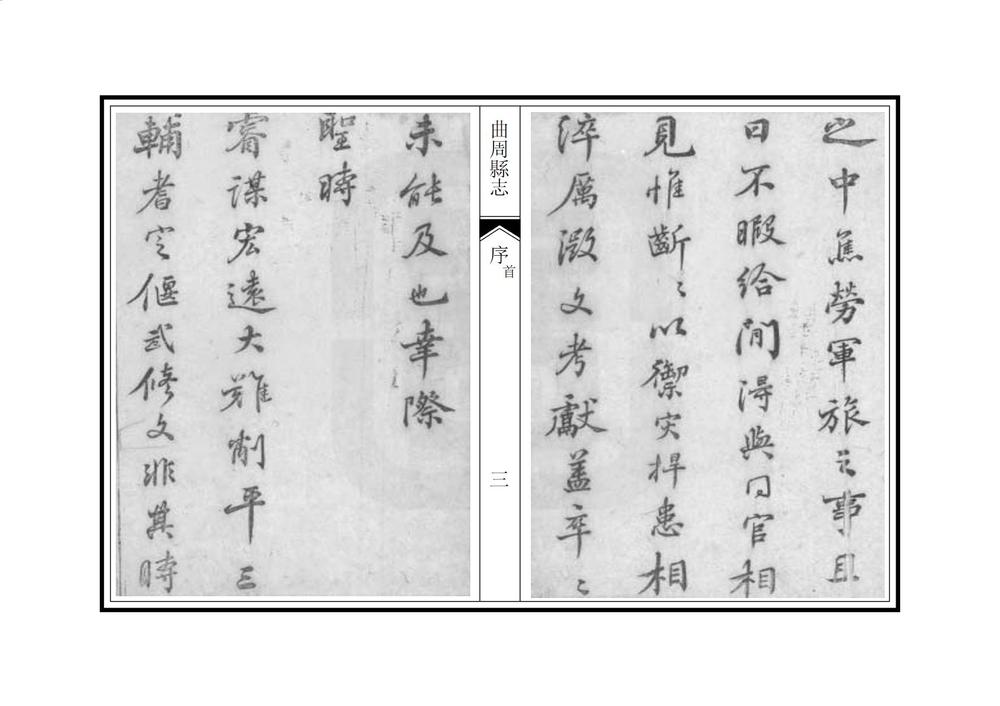 之中焦勞軍旅之事且
日不暇給間得與同官相
見惟斷〻以禦灾捍患相
淬厲瀔文考獻蓋卒〻
曲周縣志
序
首
三
未能及也幸際
聖時
睿謀宏遠大難削平三
輔耆定偃武修文非其時